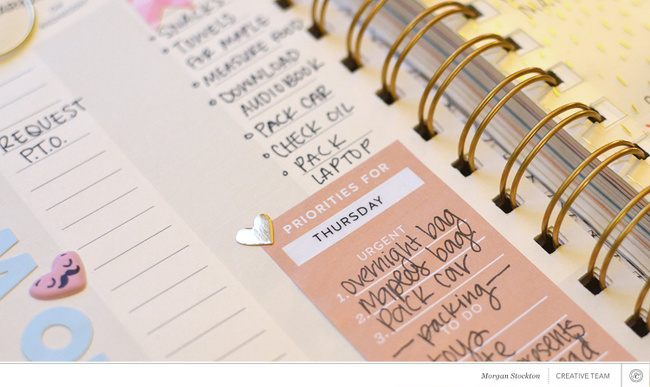 SNACKS
TOWELS
FOR MAPLE
MEASURE
DOWNLOAD
AUDIOBOOK
PACK CAR
CHECK OIL
PACK
LAPTOP
REQUEST
P.T.O.
PRIORITIES FOR
THURSDAY
URGENT
1. overnight bag
2. Maples bag
3. pack car
— packing —
TO DO
Morgan Stockton
CREATIVE TEAM